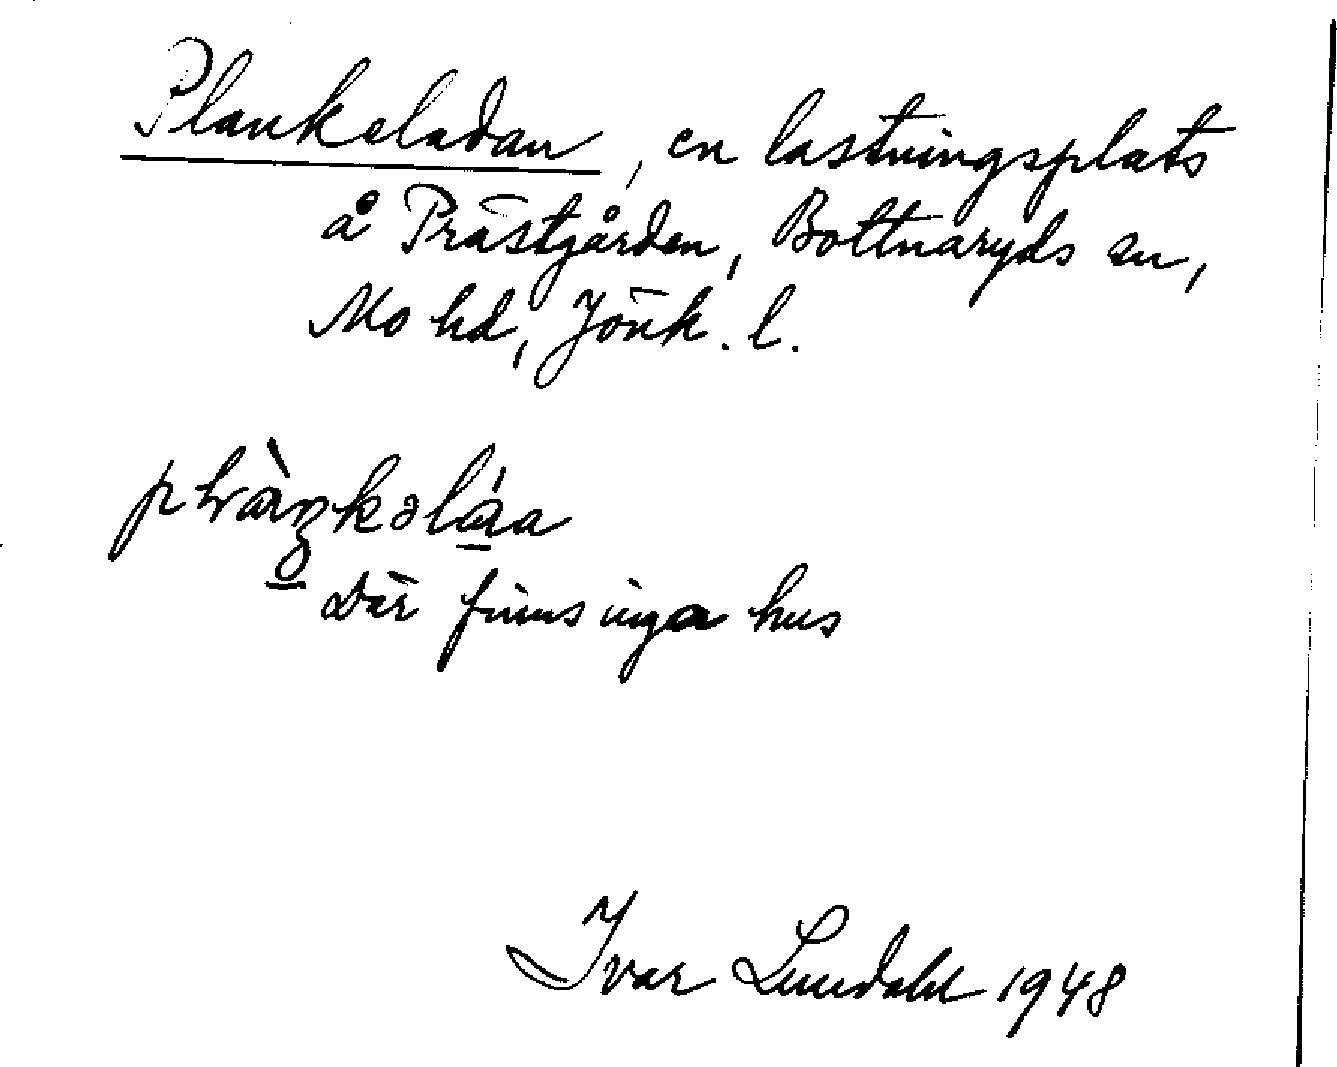 Plankeladan, en lastningsplats
å Prästgården, Bottnaryds sn,
Mo hd, Jönk. l.
Där finns inga hus
Ivar Lundahl 1948